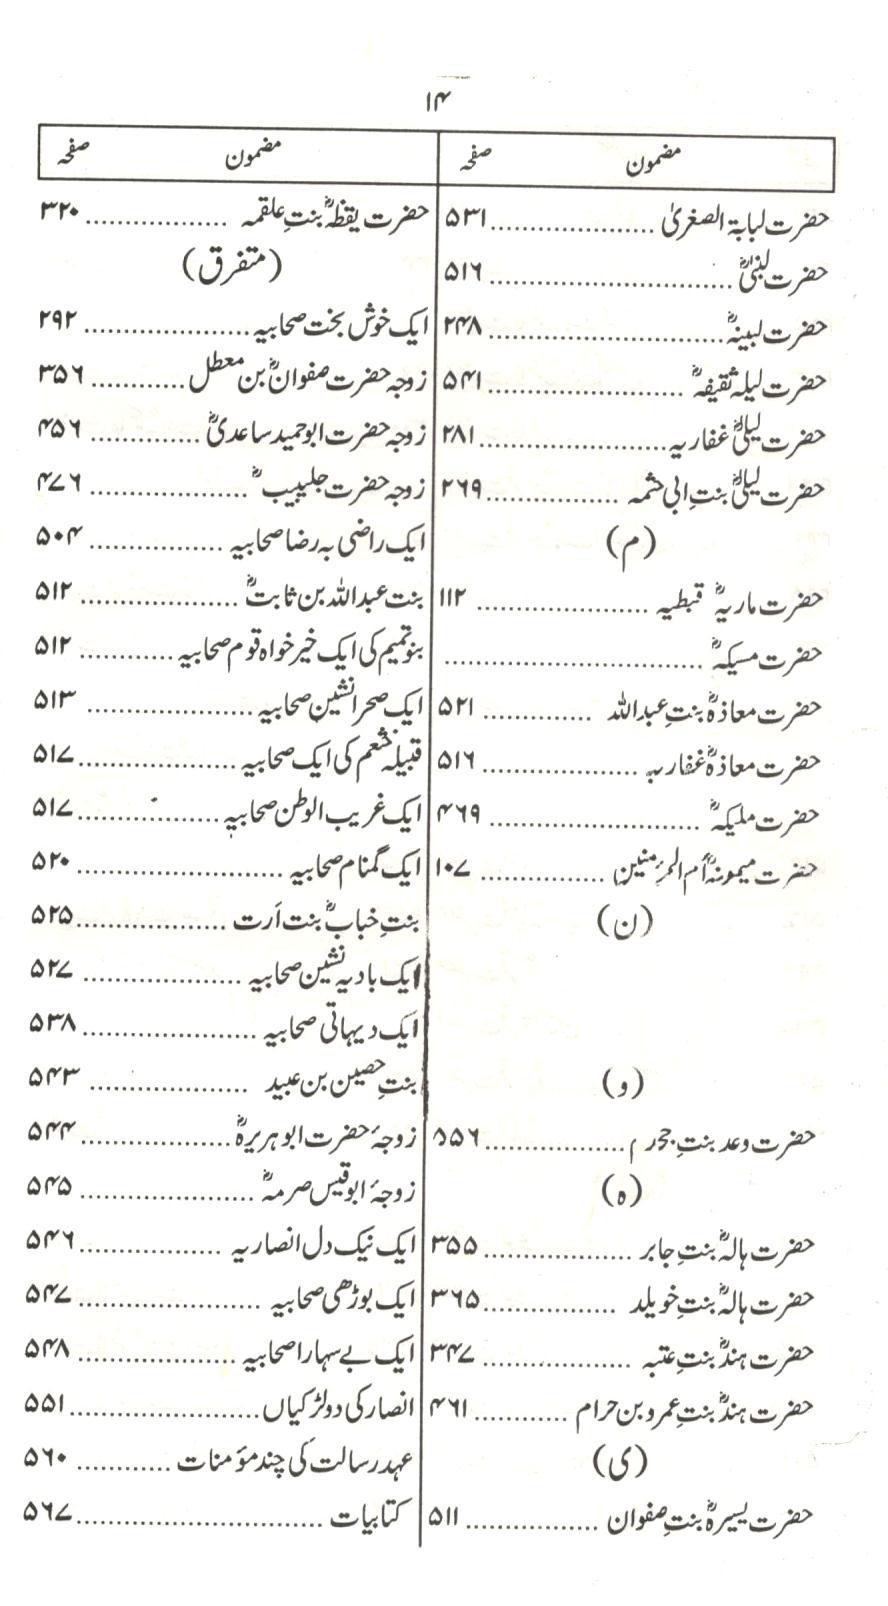 ۱۴
مضمون صفحہ
حضرت لبابۃ الصغریٰ ..................... ۵۳۱
حضرت لبنیٰؓ ............................... ۵۱۶
حضرت لبینہؓ ............................... ۲۴۸
حضرت لیلہ ثقیفہؓ ......................... ۵۴۱
حضرت لیلیٰؓ غفاریہ ........................ ۲۸۱
حضرت لیلیٰؓ بنتِ ابی حثمہ ................. ۲۶۹
(م)
حضرت ماریہؓ قبطیہ ...................... ۱۱۲
حضرت مسیکہؓ .................................
حضرت معاذہؓ بنتِ عبداللہ .............. ۵۲۱
حضرت معاذہؓ غفاریہ .................... ۵۱۶
حضرت ملیکہؓ ........................... ۴۶۹
حضرت میمونہؓ اُم المؤمنین ................ ۱۰۷
(ن)
(و)
حضرت وعد بنتِ جحرم .................. ۵۵۶
(ہ)
حضرت ہالہؓ بنتِ جابر ................... ۳۵۵
حضرت ہالہؓ بنتِ خویلد ................. ۳۶۵
حضرت ہندؓ بنتِ عتبہ ................... ۳۴۷
حضرت ہندؓ بنتِ عمرو بن حرام ............ ۴۶۱
(ی)
حضرت یسیرہؓ بنتِ صفوان ................. ۵۱۱
مضمون صفحہ
حضرت یقظہؓ بنتِ علقمہ .................. ۳۲۰
(متفرق)
ایک خوش بخت صحابیہ ..................... ۲۹۲
زوجہ حضرت صفوانؓ بن معطل ............ ۳۵۶
زوجہ حضرت ابوحمید ساعدیؓ .............. ۴۵۶
زوجہ حضرت جلیبیبؓ .................... ۴۷۶
ایک راضی بہ رضا صحابیہ ................. ۵۰۴
بنت عبداللہ بن ثابتؓ .................... ۵۱۲
بنوتمیم کی ایک خیر خواہ قوم صحابیہ ............ ۵۱۲
ایک صحرا نشین صحابیہ ..................... ۵۱۳
قبیلہ خثعم کی ایک صحابیہ .................... ۵۱۷
ایک غریب الوطن صحابیہ .................. ۵۱۷
ایک گمنام صحابیہ .......................... ۵۲۰
بنتِ خبابؓ بنت اَرت ................... ۵۲۵
ایک بادیہ نشین صحابیہ .................... ۵۲۷
ایک دیہاتی صحابیہ ...................... ۵۳۸
بنتِ حصین بن عبید .................... ۵۴۳
زوجۂ حضرت ابوہریرہؓ ................... ۵۴۴
زوجۂ ابوقیس صرمہؓ ...................... ۵۴۵
ایک نیک دل انصاریہ .................. ۵۴۶
ایک بوڑھی صحابیہ ........................ ۵۴۷
ایک بے سہارا صحابیہ .................... ۵۴۸
انصار کی دو لڑکیاں ........................ ۵۵۱
عہد رسالت کی چند مؤمنات ............ ۵۶۰
کتابیات ............................... ۵۶۷